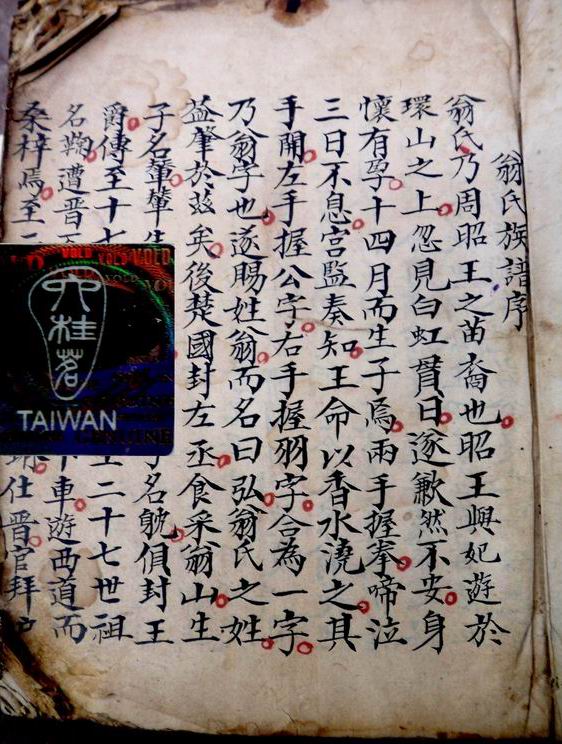 翁氏族譜序
翁氏乃周昭王之苗裔也昭王與妃遊於
環山之上忽見白虹貫日遂歉然不安身
懷有孕十四月而生子焉兩手握拳啼泣
三日不息宮監奏知王命以香水澆之其
手開左手握公字右手握羽字合為一字
乃翁字也遂賜姓翁而名曰弘翁氏之姓
益肇於茲矣後楚國封左丞食采翁山生
子名輦輦生 子名 俱封王
爵傳至十七 二十七世祖
名鞠遭晋 下車遊西道而
桑梓焉至 仕晋官拜
六桂茗
TAIWAN
VOLD VOLD VOLD